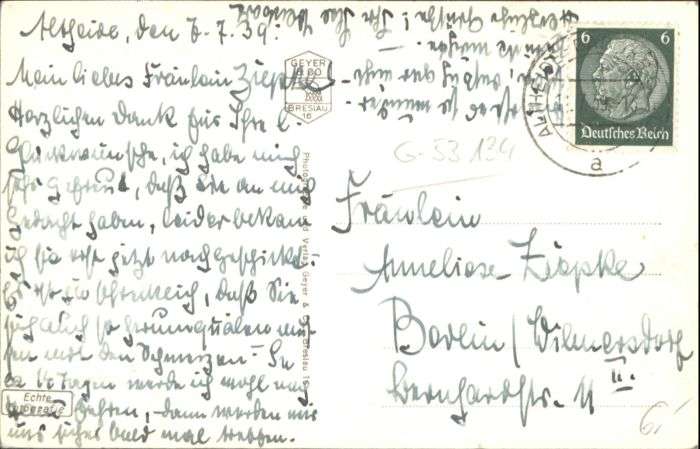 Altheide, den 7.7.39.
Mein liebes Fräulein Ziepke
Herzlichen Dank für Ihre l.
Glückwünsche, ich habe mich
sehr gefreut, daß Sie an mich
gedacht haben, leider bekam
ich sie erst jetzt nachgeschickt.
Es ist ja schrecklich, daß Sie
sich auch so herumquälen müs-
sen mit den Schmerzen. In
ca 10 Tagen werde ich wohl nach
kehren, dann werden wir
uns sicher bald mal treffen.
Herzliche Grüße! Ihr
GEYER
& CO
BRESLAU
16
Photographie und Verlag Geyer & Co., Breslau 16
Echte
Fotografie
6 6
Deutsches Reich
a
G-53 134
Fräulein
Anneliese Ziepke
Berlin/Wilmersdorf
Bernhardstr. 11 II.
6,-